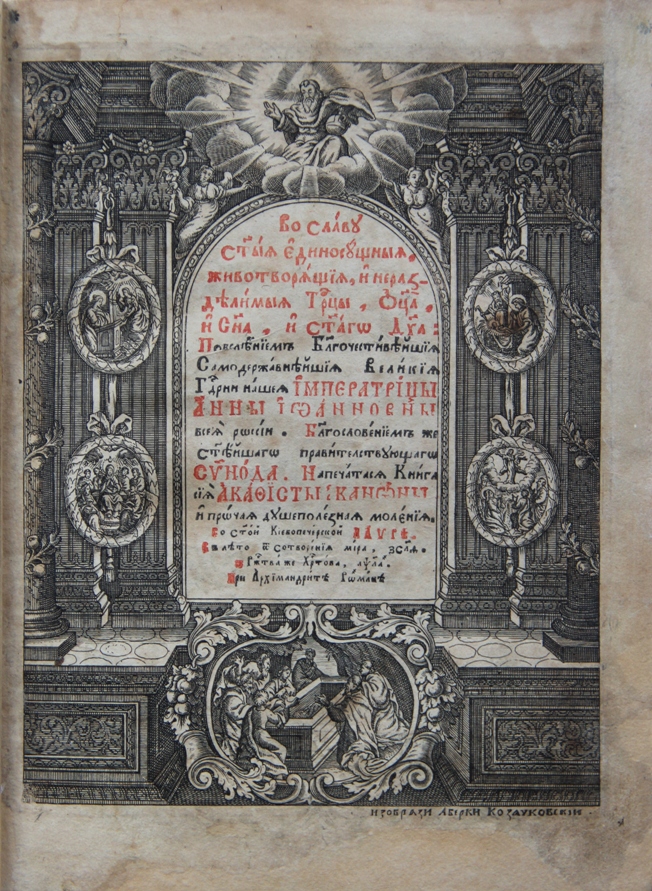 Во славу
ст҃ыѧ єдиносущныѧ,
животворѧщїѧ, и нераз̾-
дѣлимыѧ Трⷪ҇цы, Ѻц҃а,
и Сн҃а, и ст҃агѡ Дх҃а:
Повелѣнїемъ Благочестивѣйшїѧ
Самодержавнѣйшїѧ Великїѧ
Гдⷭ҇рни нашеѧ ІМПЕРАТРІЦЫ
АННЫ ІѠАННОВНЫ
всеѧ рѡссіи. Благословенїемъ же
ст҃ѣйшагѡ правителствующагѡ
СѴНОДА. Напечатасѧ Книга
сїѧ АКАѲІСТЫ: КАНѠНЫ
и прѡчаѧ душеполезнаѧ моленїѧ.
во ст҃ой Кїевопечерской ЛАѴРѢ.
В лѣто ѿ сотворенїѧ міра,
Ржⷭ҇тва же Хрⷭ҇това,
При Архімандритѣ Рѡманѣ
изобрази Козачковскїи